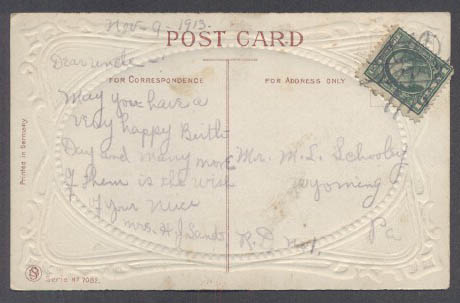 Nov-9-1913.
POST CARD
Dear uncle
FOR CORRESPONDENCE
FOR ADDRESS ONLY
May you have a
very happy Birth
Day and many more
of them is the wish
of your niece
Mrs. H. J. Sands
Mr. M. L. Schooley
Wyoming
R. D. No 1.
Pa
Printed in Germany
Serie No 7082.